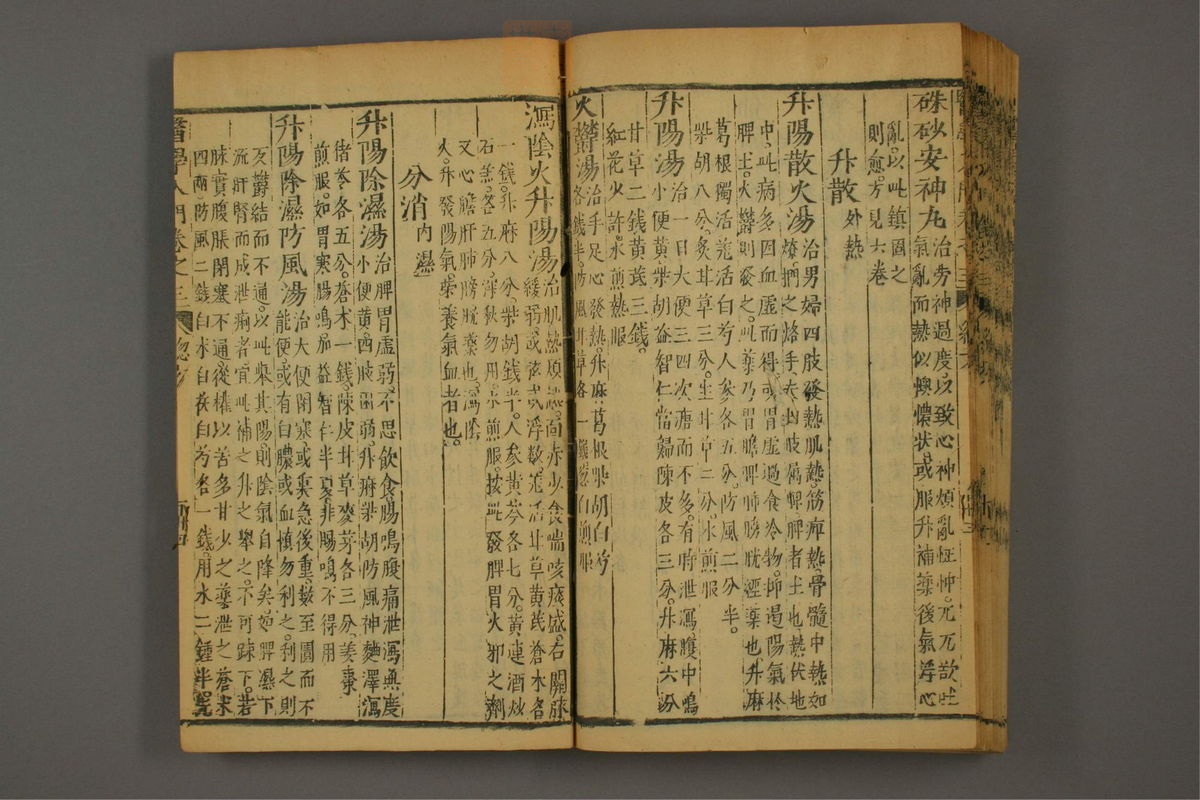 硃砂安神丸治勞神過度以致心神煩亂怔忡兀兀欲吐
氣亂而熱似懊憹狀或服升補藥後氣浮心
亂以此鎮固之
則愈方見六卷
升散外熱
升陽散火湯治男婦四肢發熱肌熱筋痺熱骨髓中熱如
燎捫之烙手夫四肢屬脾脾者土也熱伏地
中此病多因血虛而得或胃虛過食冷物抑遏陽氣於
脾土火鬱則發之此藥乃胃膽脾肺膀胱經藥也升麻
葛根獨活羌活白芍人參各五分防風二分半
柴胡八分炙甘草三分生甘草二分水煎服
升陽湯治一日大便三四次溏而不多有時泄瀉腹中鳴
小便黃柴胡益智仁當歸陳皮各三分升麻六分
甘草二錢黃芪三錢
紅花火許水煎熱服
火鬱湯治手足心發熱升麻葛根柴胡白芍
各一錢半防風甘草各一錢葱白煎服
瀉陰火升陽湯治肌熱煩熱面赤少食喘咳痰盛右關脉
緩弱或弦或浮數羌活甘草黃芪蒼朮各
一錢升麻八分柴胡錢半人參黃芩各七分黃連酒炒
石羔各五分深秋勿用水煎服按此發脾胃火邪之劑
又心膽肝肺膀胱藥也瀉陰
火升發陽氣榮養氣血者也
分消內濕
升陽除濕湯治脾胃虛弱不思飲食腸鳴腹痛泄瀉無度
小便黃四肢困弱升麻柴胡防風神麯澤瀉
猪苓各五分蒼朮一錢陳皮甘草麥芽各三分姜棗
煎服如胃寒腸鳴加益智仁半夏非腸鳴不得用
升陽除濕防風湯治大便閉塞或裏急後重數至圊而不
能便或有白膿或血慎勿利之利之則
反鬱結而不通以此舉其陽則陰氣自降矣如脾濕下
流肝腎而成泄痢者宜此補之升之舉之不可踈下若
脉實腹脹閉塞不通從權以苦多甘少之藥泄之蒼朮
四兩防風二錢白朮白茯白芍各一錢用水二鍾半
醫學入門卷之三